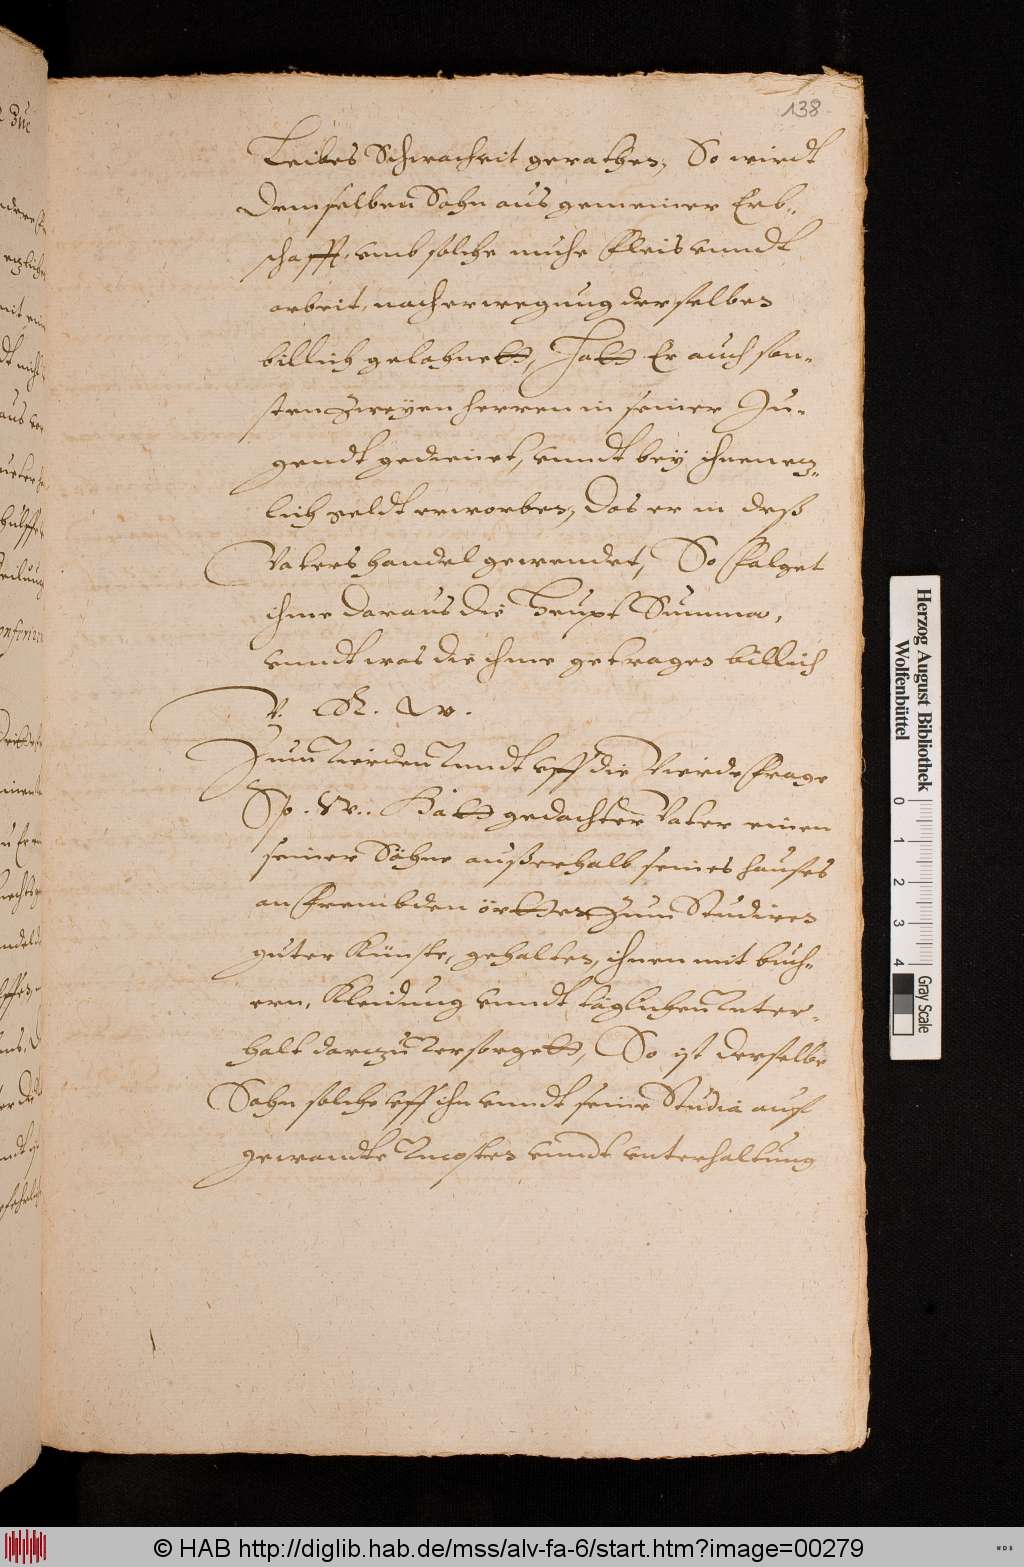 138
Leibes Schwacheit gerathen, So wirdt
demselben Sohn aus gemeiner Erb-
schafft, umb solche muhe Fleis unndt
arbeit, nach erwegung derselben
billich gelohnett, Hatt Er auch son-
sten zweyen herren in seiner Ju-
gendt gedienet, unndt bey ihnen etz-
lich geldt erworben, Das er in deß
Vaters handel gewendet, So folget
ihme daraus die Heupt Summa,
unndt was die ihme getragen billich
V. R. W.
Zum Vierden Unndt uff die Vierde Frage
Sp. W.. Hatt gedachter Vater einen
seiner Söhne außerhalb seines hauses
an frembden örtter zum Studiren
guter Künste, gehalten, ihnen mit büch-
ern, Kleidung unndt täglichen Unter-
halt darzu Versorgett, So ist derselbe
Sohn solche uff ihn unndt seine Studia auf
gewandte Uncosten unndt unterhaltung
Herzog August Bibliothek
Wolfenbüttel
0 1 2 3 4
Gray Scale
© HAB http://diglib.hab.de/mss/alv-fa-6/start.htm?image=00279